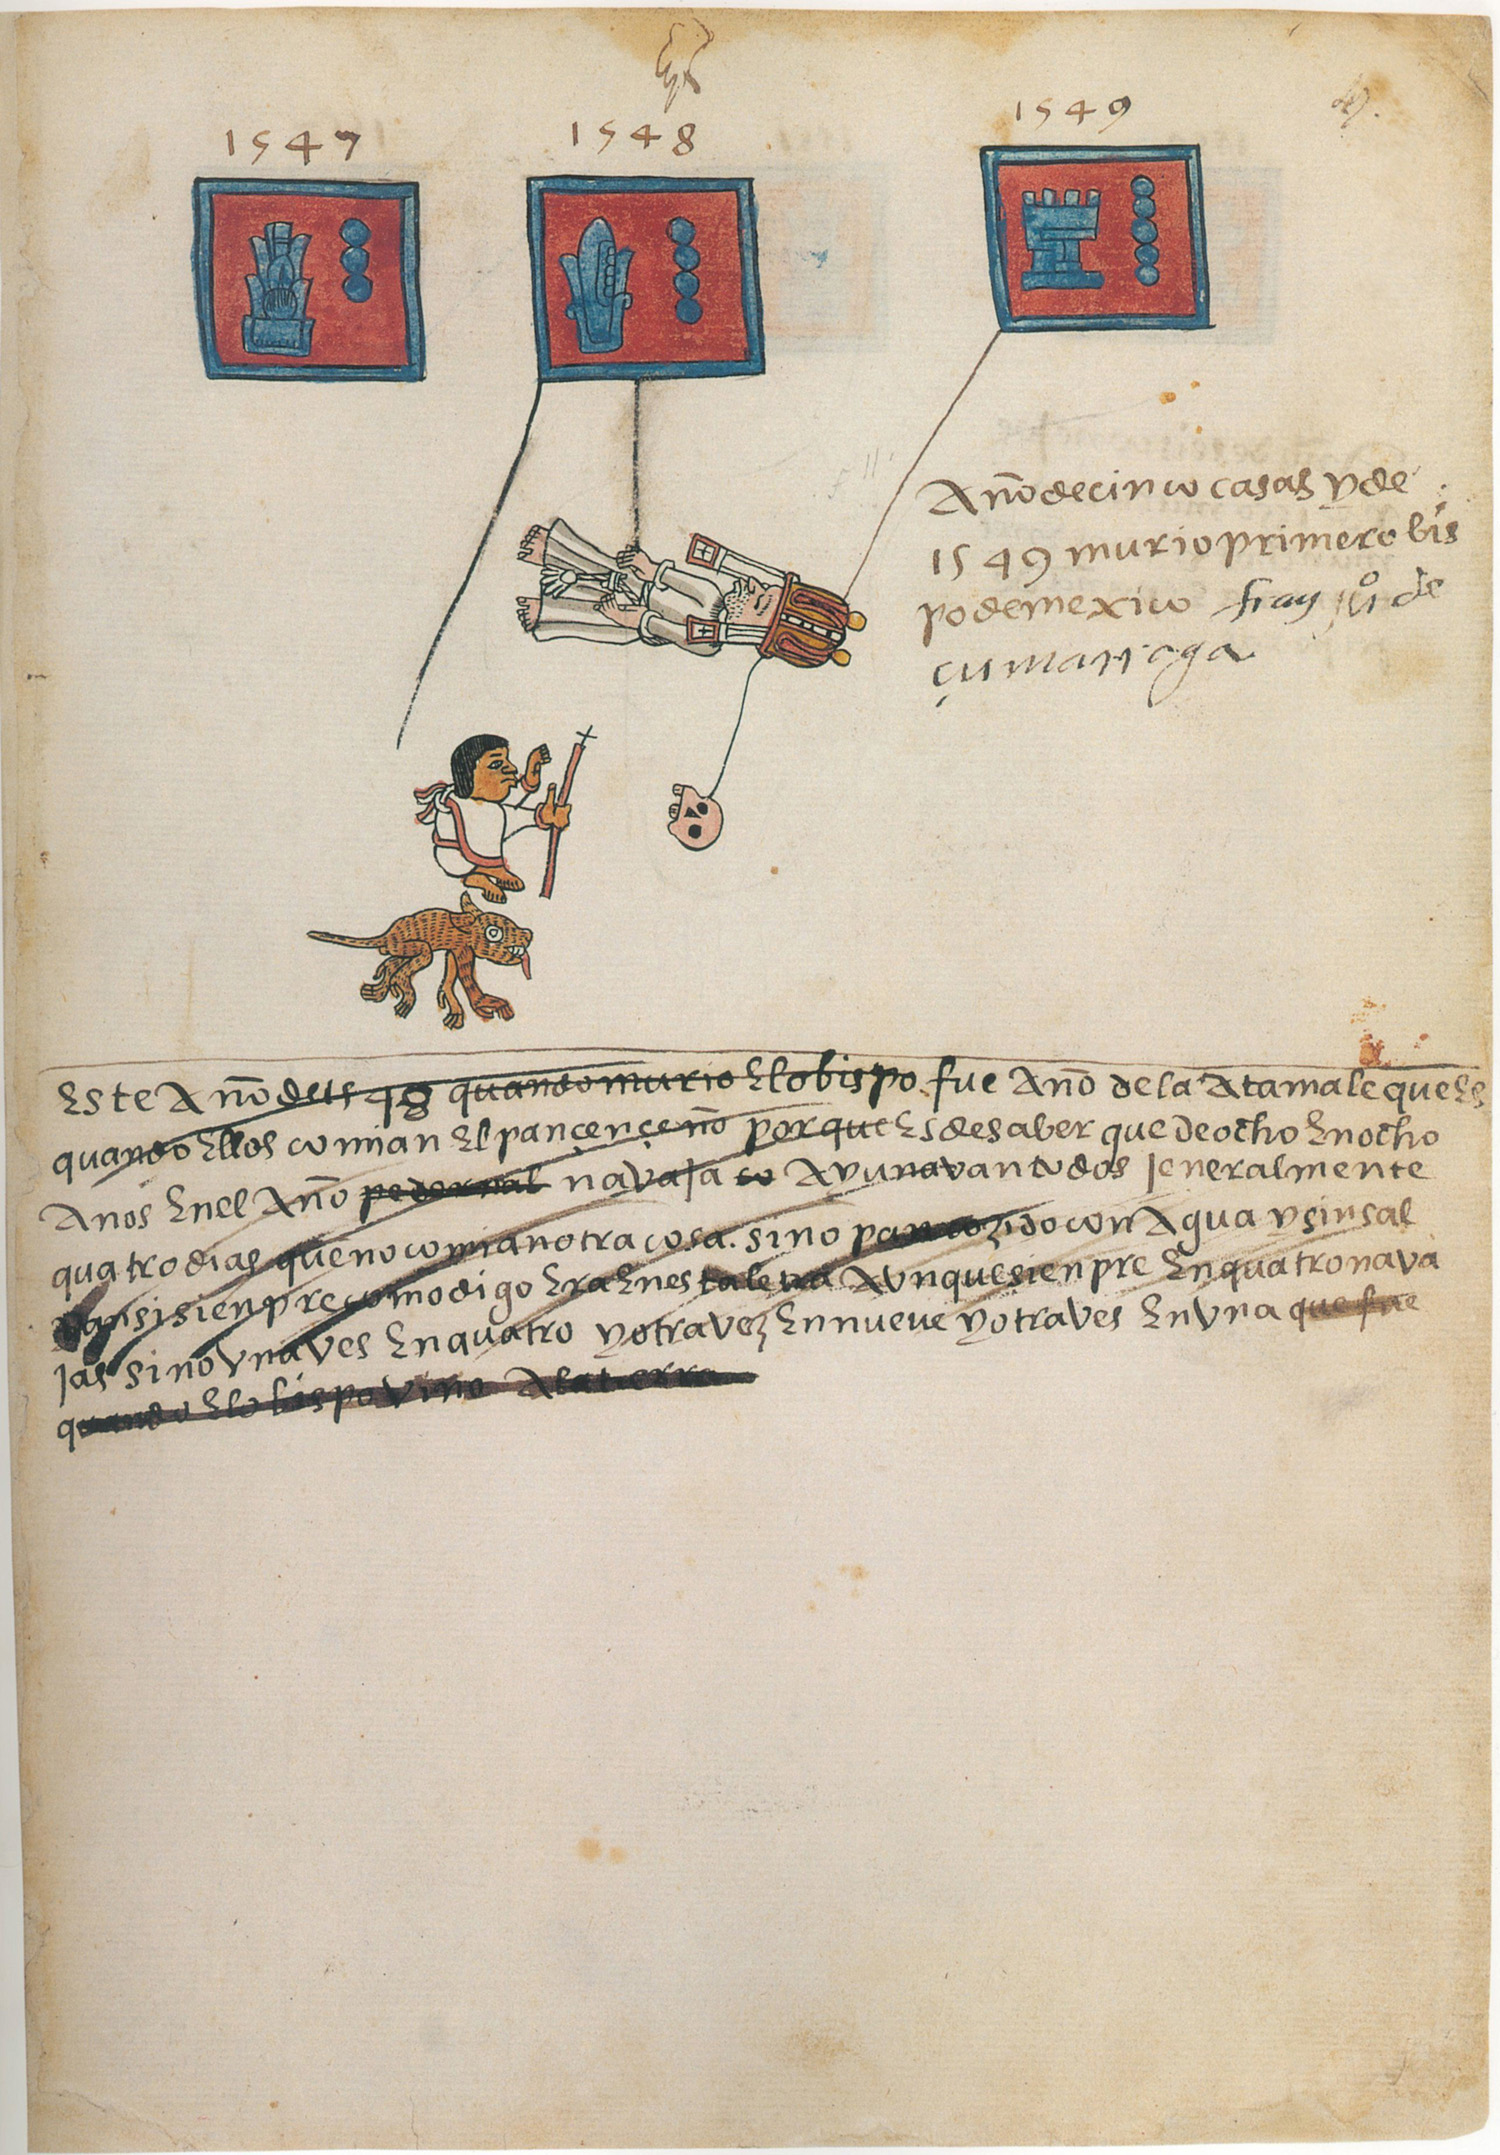 1547
1548
1549
Año de cinco casas y de
1549 murio primer obis
po de mexico fray juº de
çumarraga
Este Año de 15 48 quando murio El obispo fue Año de la Atamale que Es
quando Ellos comian El pan çençeño porque Es de saber que de ocho En ocho
Años En el Año pedernal navaja Ayunavan todos jeneralmente
quatro dias que no comian otra cosa. sino pan cozido con Agua y sin sal
y ansi sienpre como digo Era En esta letra Aunque sienpre En quatro nava
jas sino una ves En quatro y otra vez En nueve y otra ves En una que fue
quando El obispo vino A la tierra